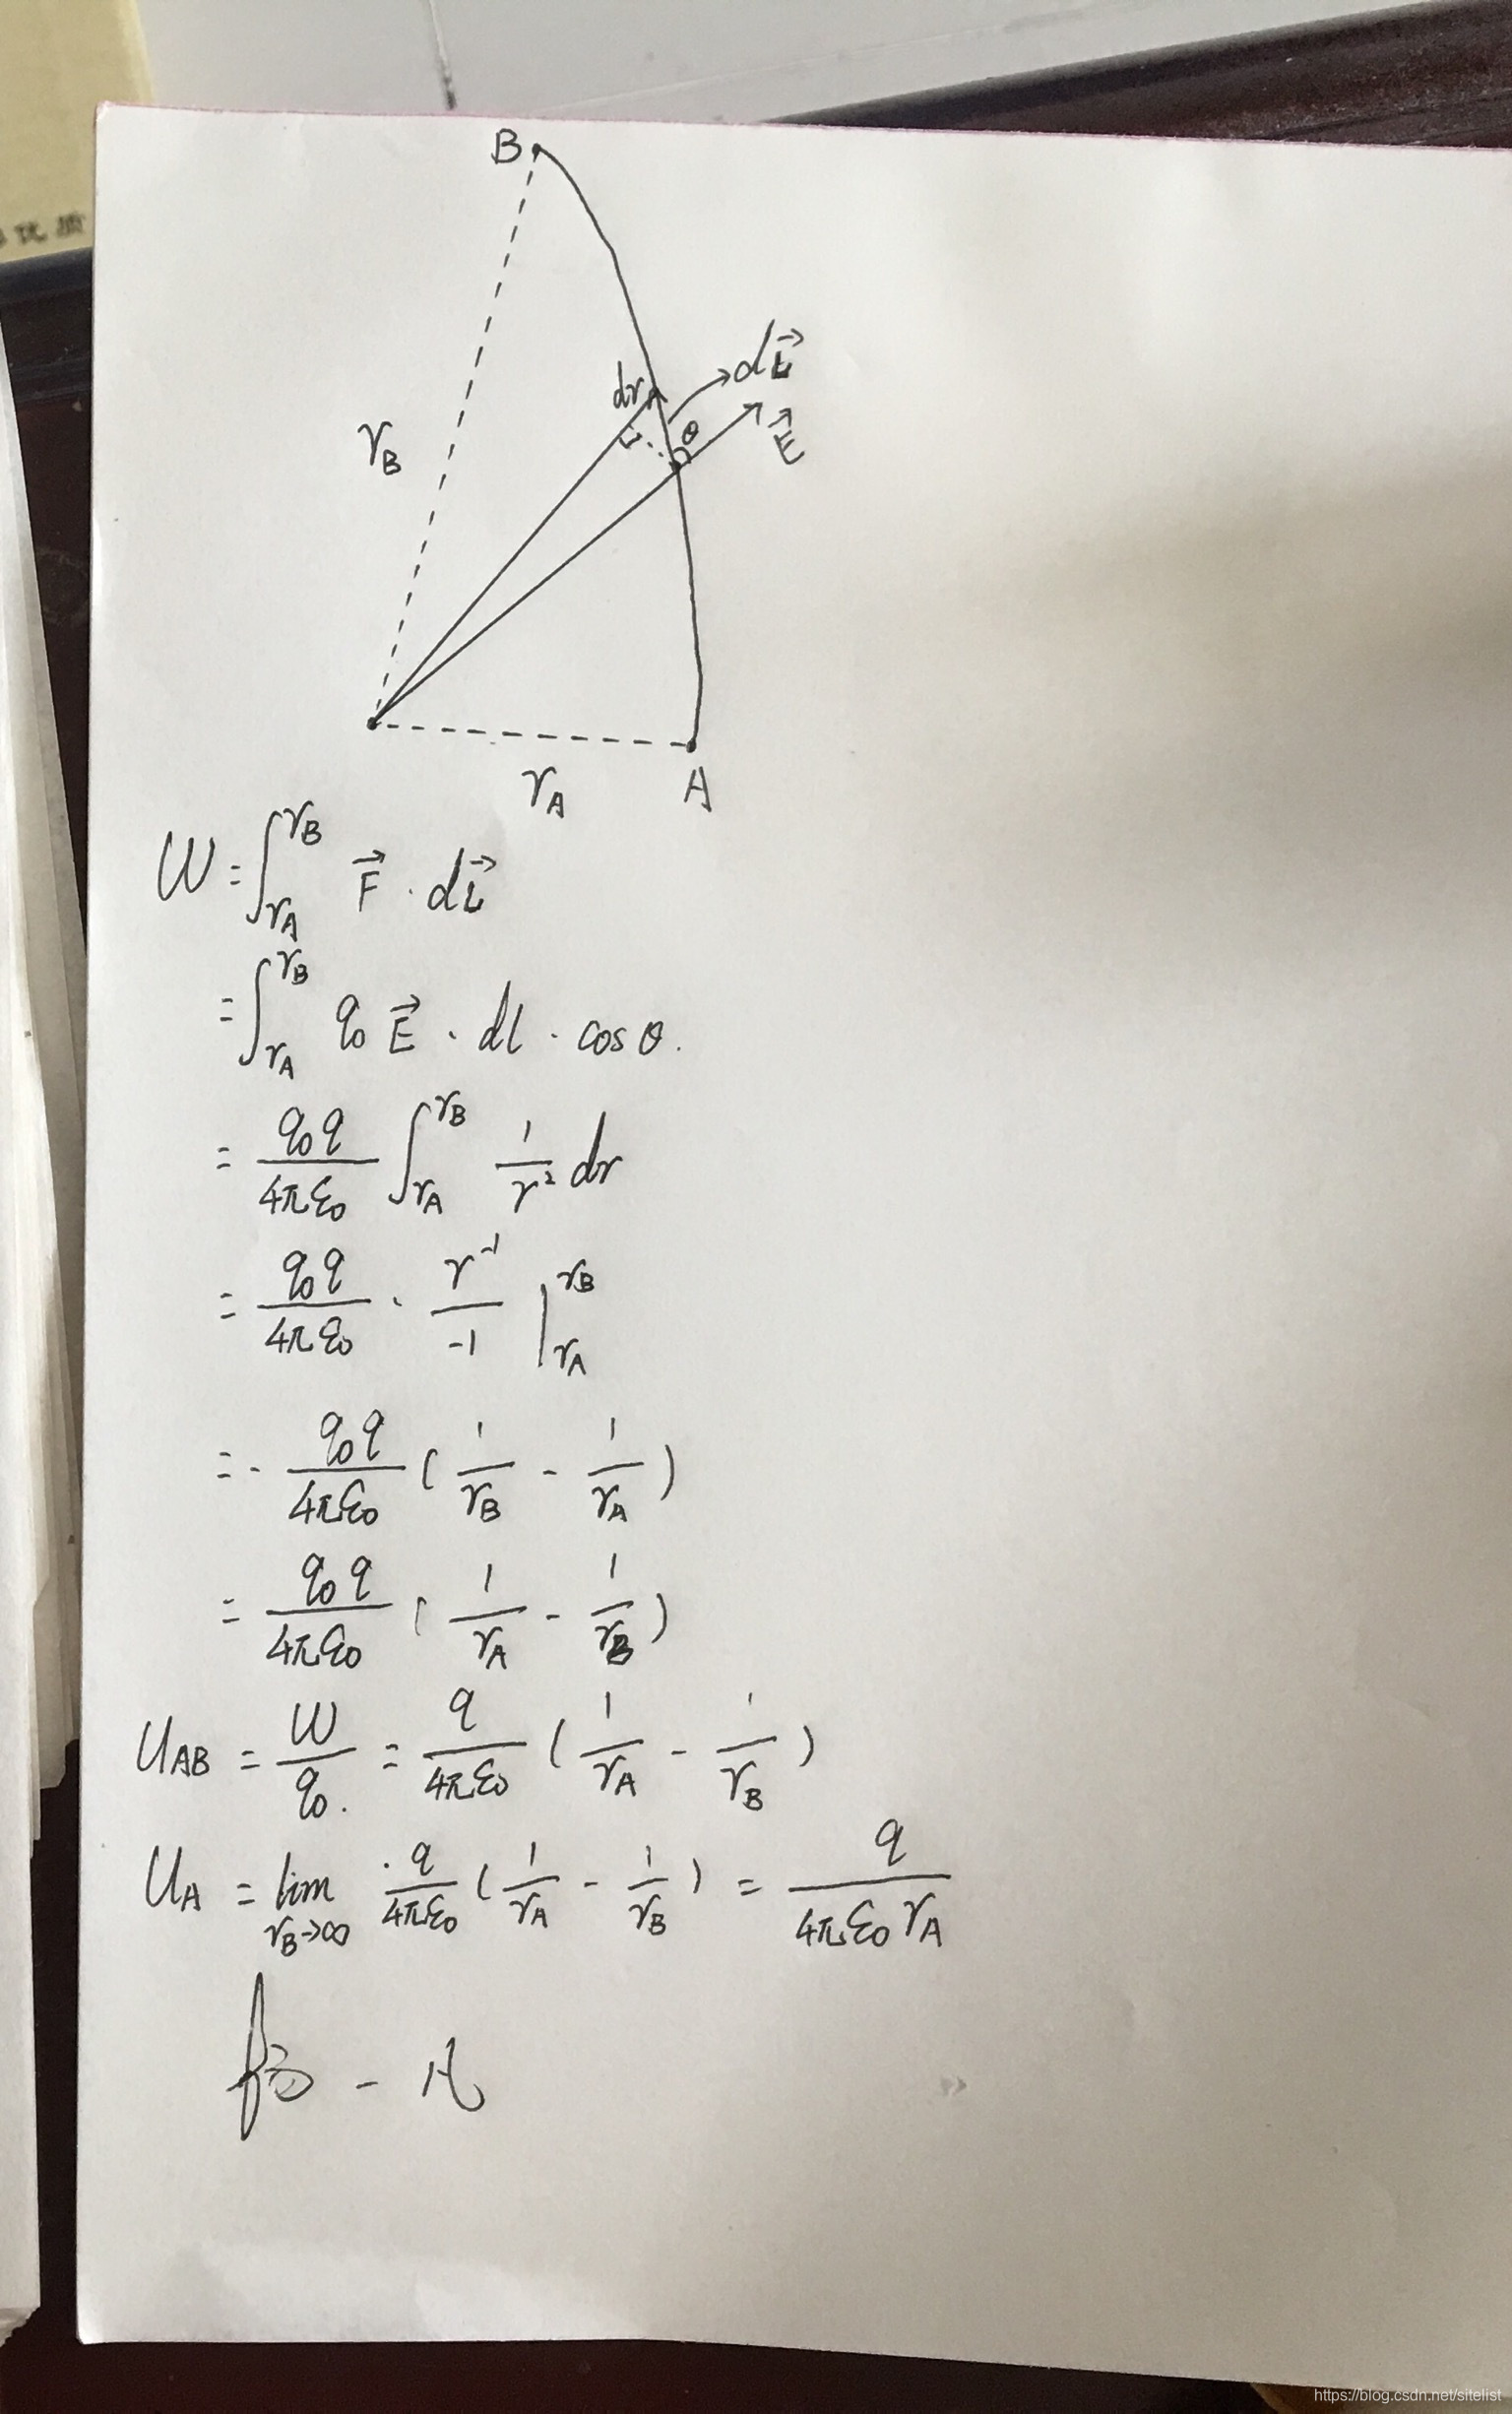 优质
B
dr
dL⃗
θ
E⃗
r_B
r_A
A
W = ∫_{r_A}^{r_B} F⃗ · dL⃗
= ∫_{r_A}^{r_B} q₀ E⃗ · dl · cos θ.
= \frac{q₀q}{4πε₀} ∫_{r_A}^{r_B} \frac{1}{r²} dr
= \frac{q₀q}{4πε₀} · \frac{r^{-1}}{-1} |_{r_A}^{r_B}
= - \frac{q₀q}{4πε₀} ( \frac{1}{r_B} - \frac{1}{r_A} )
= \frac{q₀q}{4πε₀} ( \frac{1}{r_A} - \frac{1}{r_B} )
U_{AB} = \frac{W}{q₀.} = \frac{q}{4πε₀} ( \frac{1}{r_A} - \frac{1}{r_B} )
U_A = lim_{r_B→∞} \frac{q}{4πε₀} ( \frac{1}{r_A} - \frac{1}{r_B} ) = \frac{q}{4πε₀ r_A}
https://blog.csdn.net/sitelist